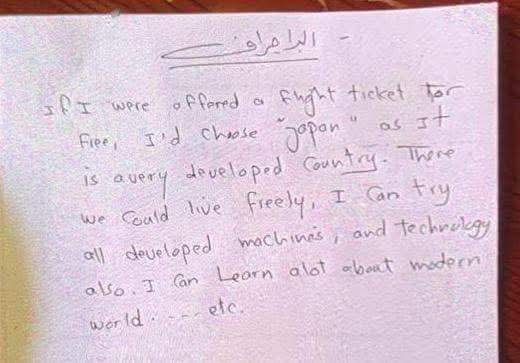 - البراجراف
If I were offered a flight ticket for
free, I'd choose "Japan" as It
is avery developed Country. There
we Could live freely, I Can try
all developed machines, and technology
also. I Can Learn alot about modern
world. ---- etc.